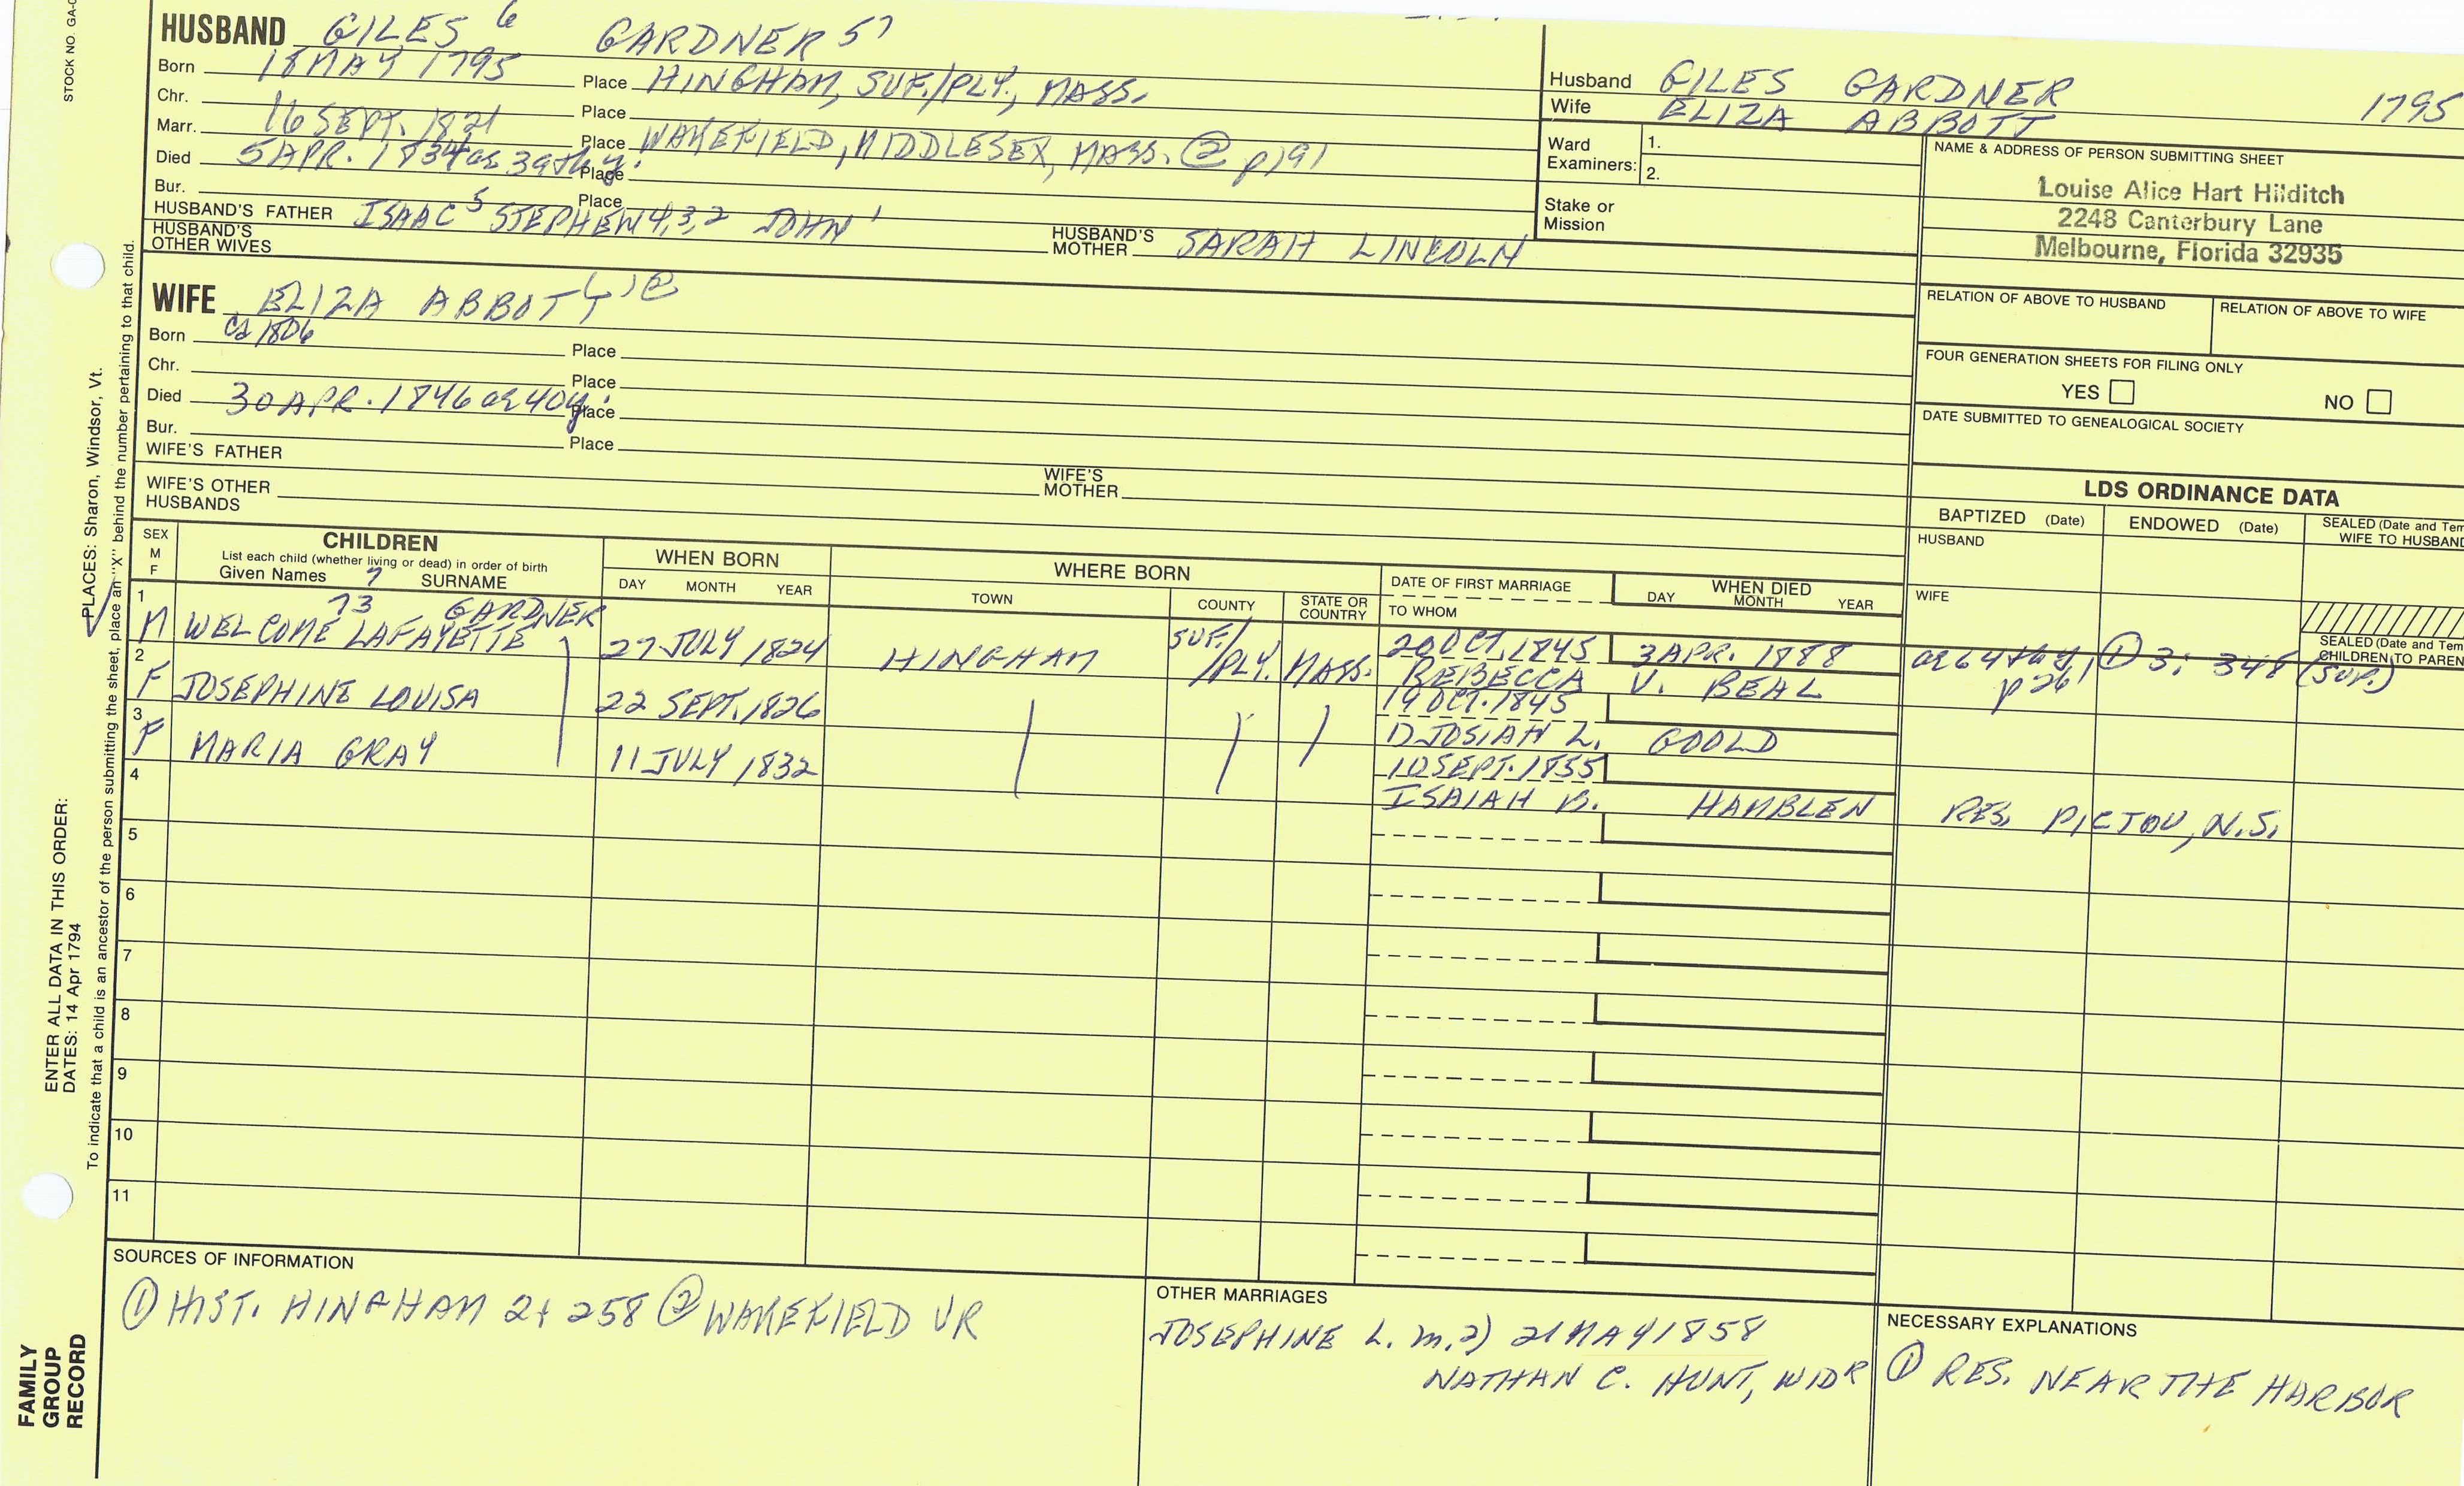 STOCK NO. GA-
HUSBAND GILES 6 GARDNER 57
Born 18 MAY 1795 Place HINGHAM, SUF./PLY., MASS.
Chr. Place
Marr. 16 SEPT. 1821 Place WAKEFIELD, MIDDLESEX, MASS. ② p191
Died 5 APR. 1834 ag 39th y. Place
Bur. Place
HUSBAND'S FATHER ISAAC 5 STEPHEN 4,3,2 JOHN 1
HUSBAND'S MOTHER SARAH LINCOLN
HUSBAND'S OTHER WIVES
Husband GILES GARDNER 1795
Wife ELIZA ABBOTT
Ward Examiners: 1.
2.
Stake or Mission
NAME & ADDRESS OF PERSON SUBMITTING SHEET
Louise Alice Hart Hilditch
2248 Canterbury Lane
Melbourne, Florida 32935
RELATION OF ABOVE TO HUSBAND
RELATION OF ABOVE TO WIFE
FOUR GENERATION SHEETS FOR FILING ONLY
YES NO
DATE SUBMITTED TO GENEALOGICAL SOCIETY
WIFE ELIZA ABBOTT
Born ca 1806 Place
Chr. Place
Died 30 APR. 1846 ag 40 y. Place
Bur. Place
WIFE'S FATHER
WIFE'S MOTHER
WIFE'S OTHER HUSBANDS
LDS ORDINANCE DATA
BAPTIZED (Date) ENDOWED (Date) SEALED (Date and Tem
WIFE TO HUSBAND
HUSBAND
WIFE
SEALED (Date and Tem
CHILDREN TO PAREN
SEX M F
CHILDREN
List each child (whether living or dead) in order of birth
Given Names 7 SURNAME
WHEN BORN
DAY MONTH YEAR
WHERE BORN
TOWN COUNTY STATE OR COUNTRY
DATE OF FIRST MARRIAGE
TO WHOM
WHEN DIED
DAY MONTH YEAR
1 M WELCOME LAFAYETTE 73 GARDNER 27 JULY 1824 HINGHAM SUF./PLY. MASS. 20 OCT. 1845 3 APR. 1888 ag 64th y, p26 ① 3: 348 (SUP.)
REBECCA V. BEAL
2 F JOSEPHINE LOUISA 22 SEPT. 1826 19 OCT. 1845
1) JOSIAH L. GOOLD
3 F MARIA GRAY 11 JULY 1832 10 SEPT. 1855
ISAIAH B. HAMBLEN RES. PICTOU, N.S.
4
5
6
7
8
9
10
11
SOURCES OF INFORMATION
① HIST. HINGHAM 2: 258 ② WAKEFIELD VR
OTHER MARRIAGES
JOSEPHINE L. m. 2) 21 MAY 1858
NATHAN C. HUNT, WIDR
NECESSARY EXPLANATIONS
① RES. NEAR THE HARBOR
FAMILY GROUP RECORD
ENTER ALL DATA IN THIS ORDER:
DATES: 14 Apr 1794
PLACES: Sharon, Windsor, Vt.
To indicate that a child is an ancestor of the person submitting the sheet, place an "X" behind the number pertaining to that child.